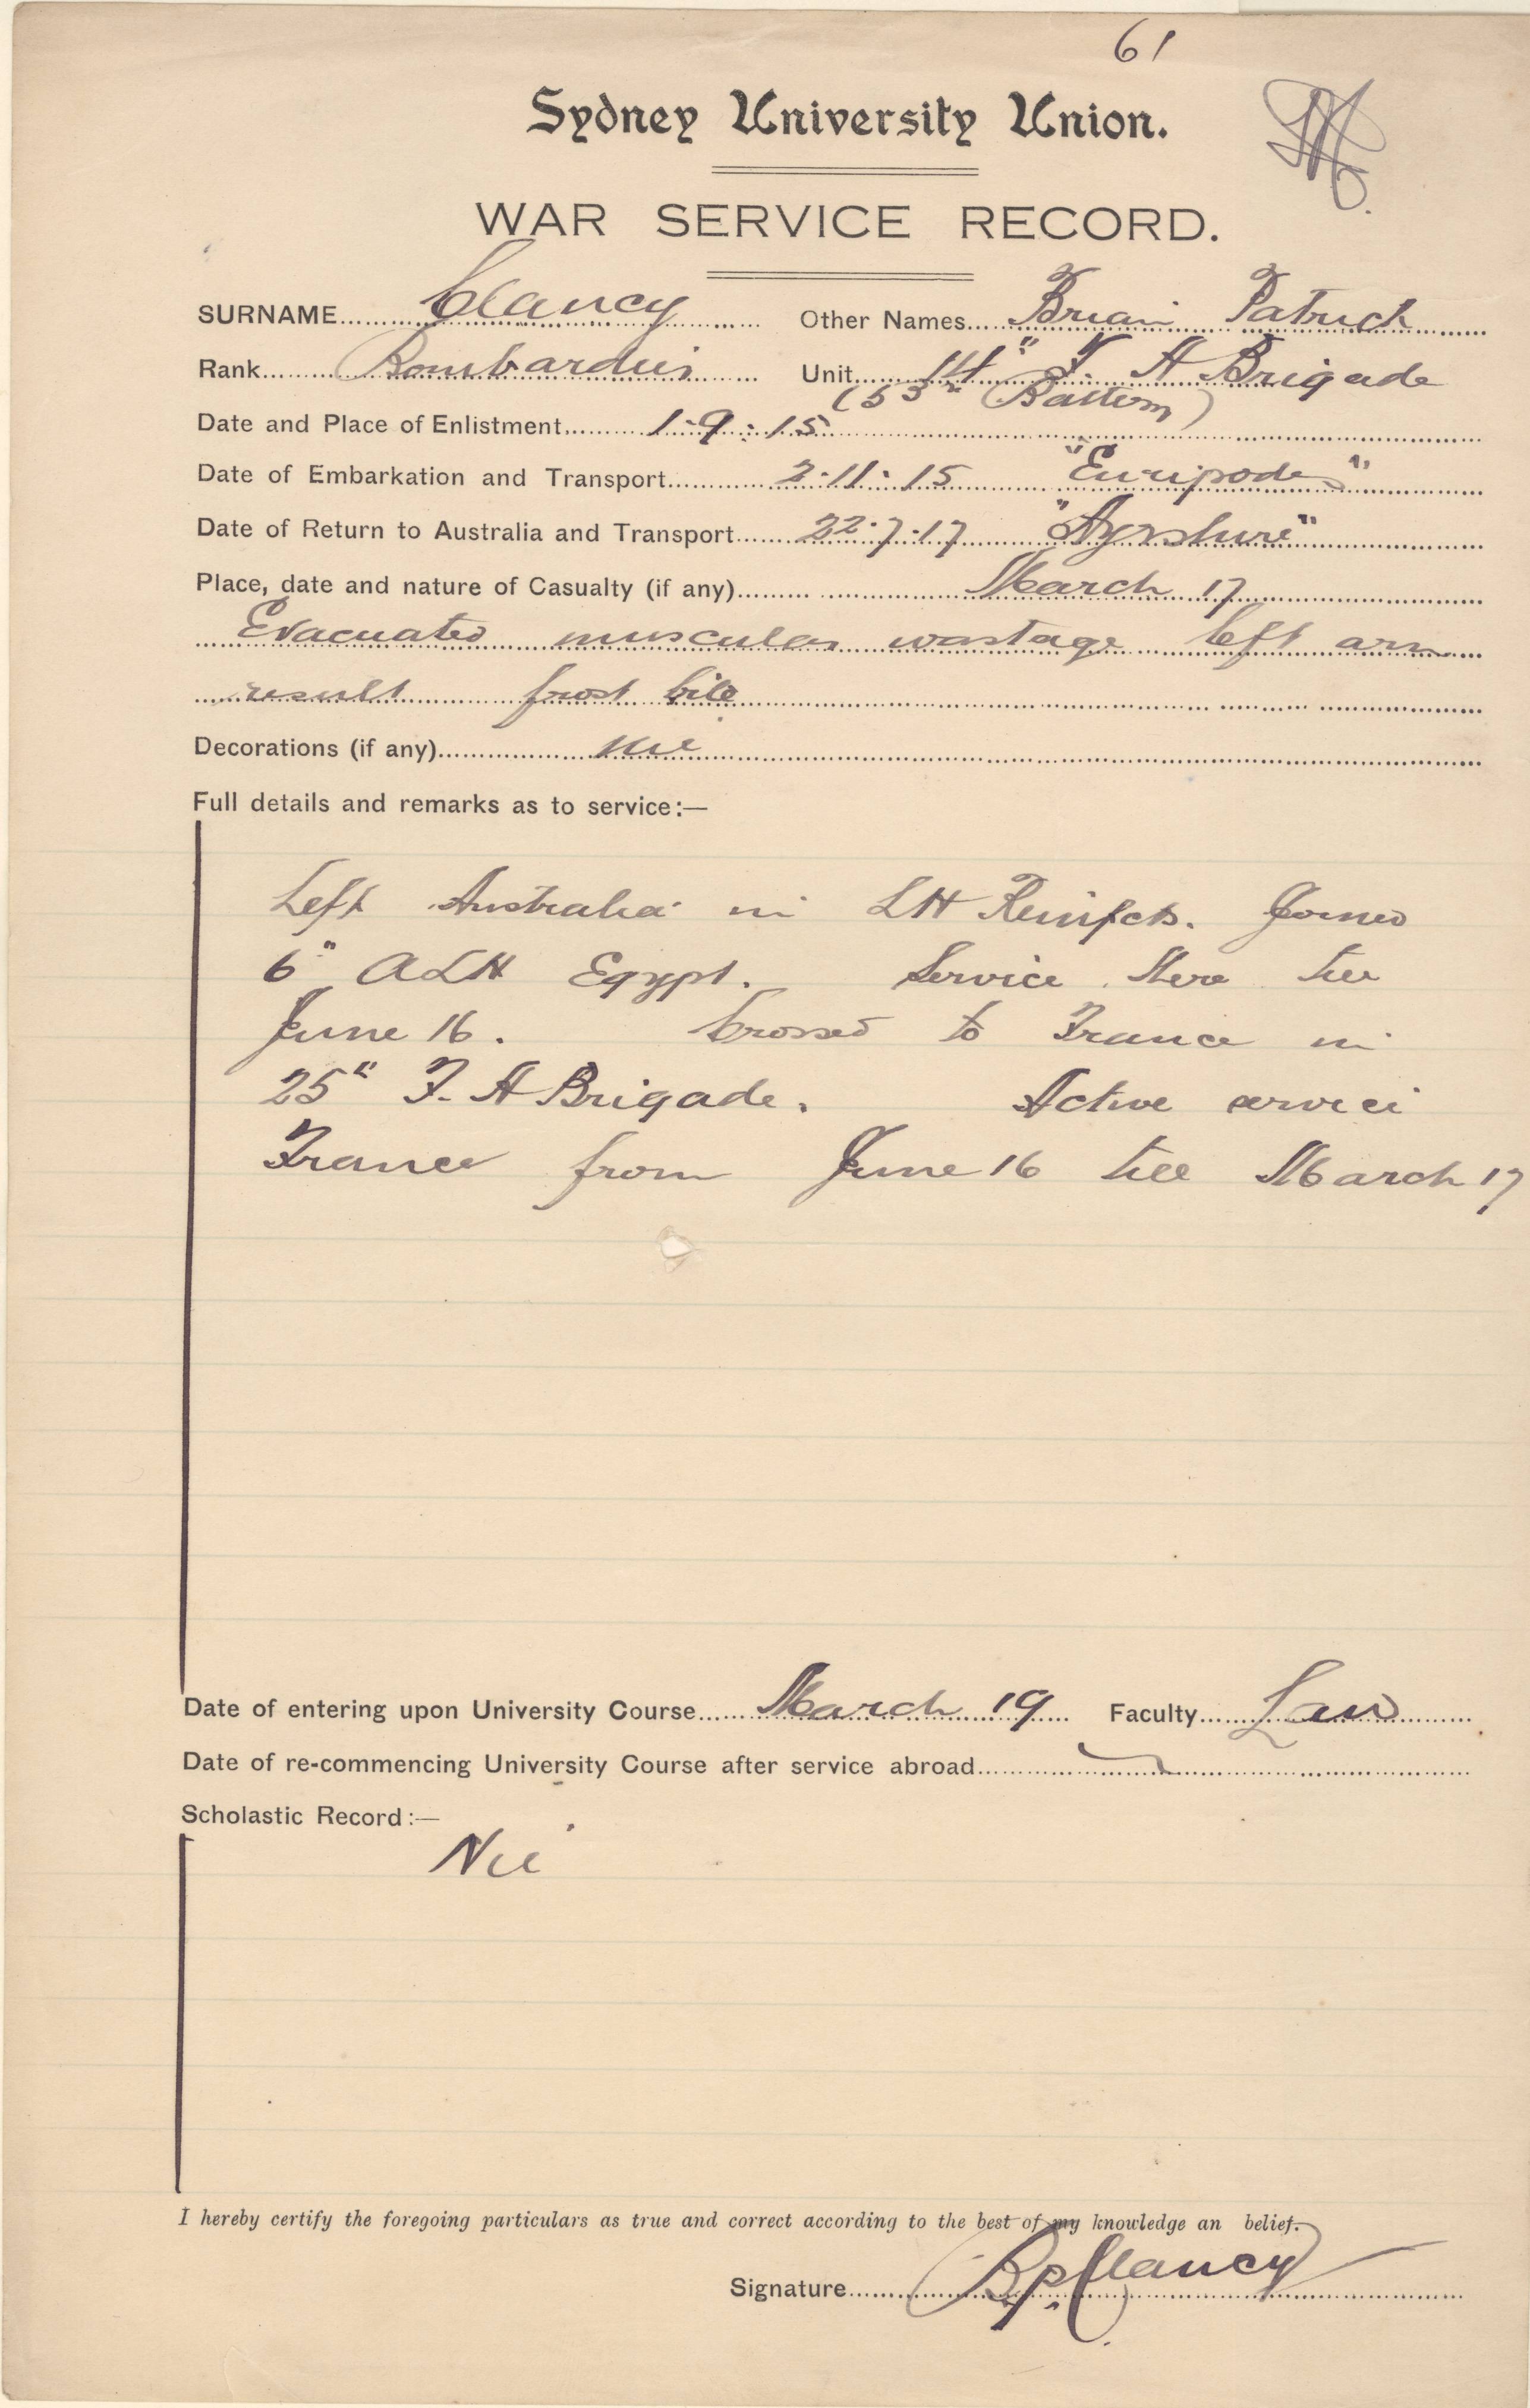 61
Sydney University Union.
WAR SERVICE RECORD.
SURNAME Clancy Other Names Brian Patrick
Rank Bombardier Unit 14" F. A Brigade
(53rd Battery)
Date and Place of Enlistment 1.9.15
Date of Embarkation and Transport 2.11.15 "Euripides"
Date of Return to Australia and Transport 22.7.17 "Ayrshire"
Place, date and nature of Casualty (if any) March 17
Evacuated muscular wastage left arm
result frost bite
Decorations (if any) nil
Full details and remarks as to service:—
Left Australia in LH Reinfcts. Joined
6" ALH Egypt. Service there till
June 16. Crossed to France in
25" F. A Brigade. Active service
France from June 16 till March 17
Date of entering upon University Course March 19 Faculty Law
Date of re-commencing University Course after service abroad
Scholastic Record:—
Nil
I hereby certify the foregoing particulars as true and correct according to the best of my knowledge an belief.
Signature B.P. Clancy